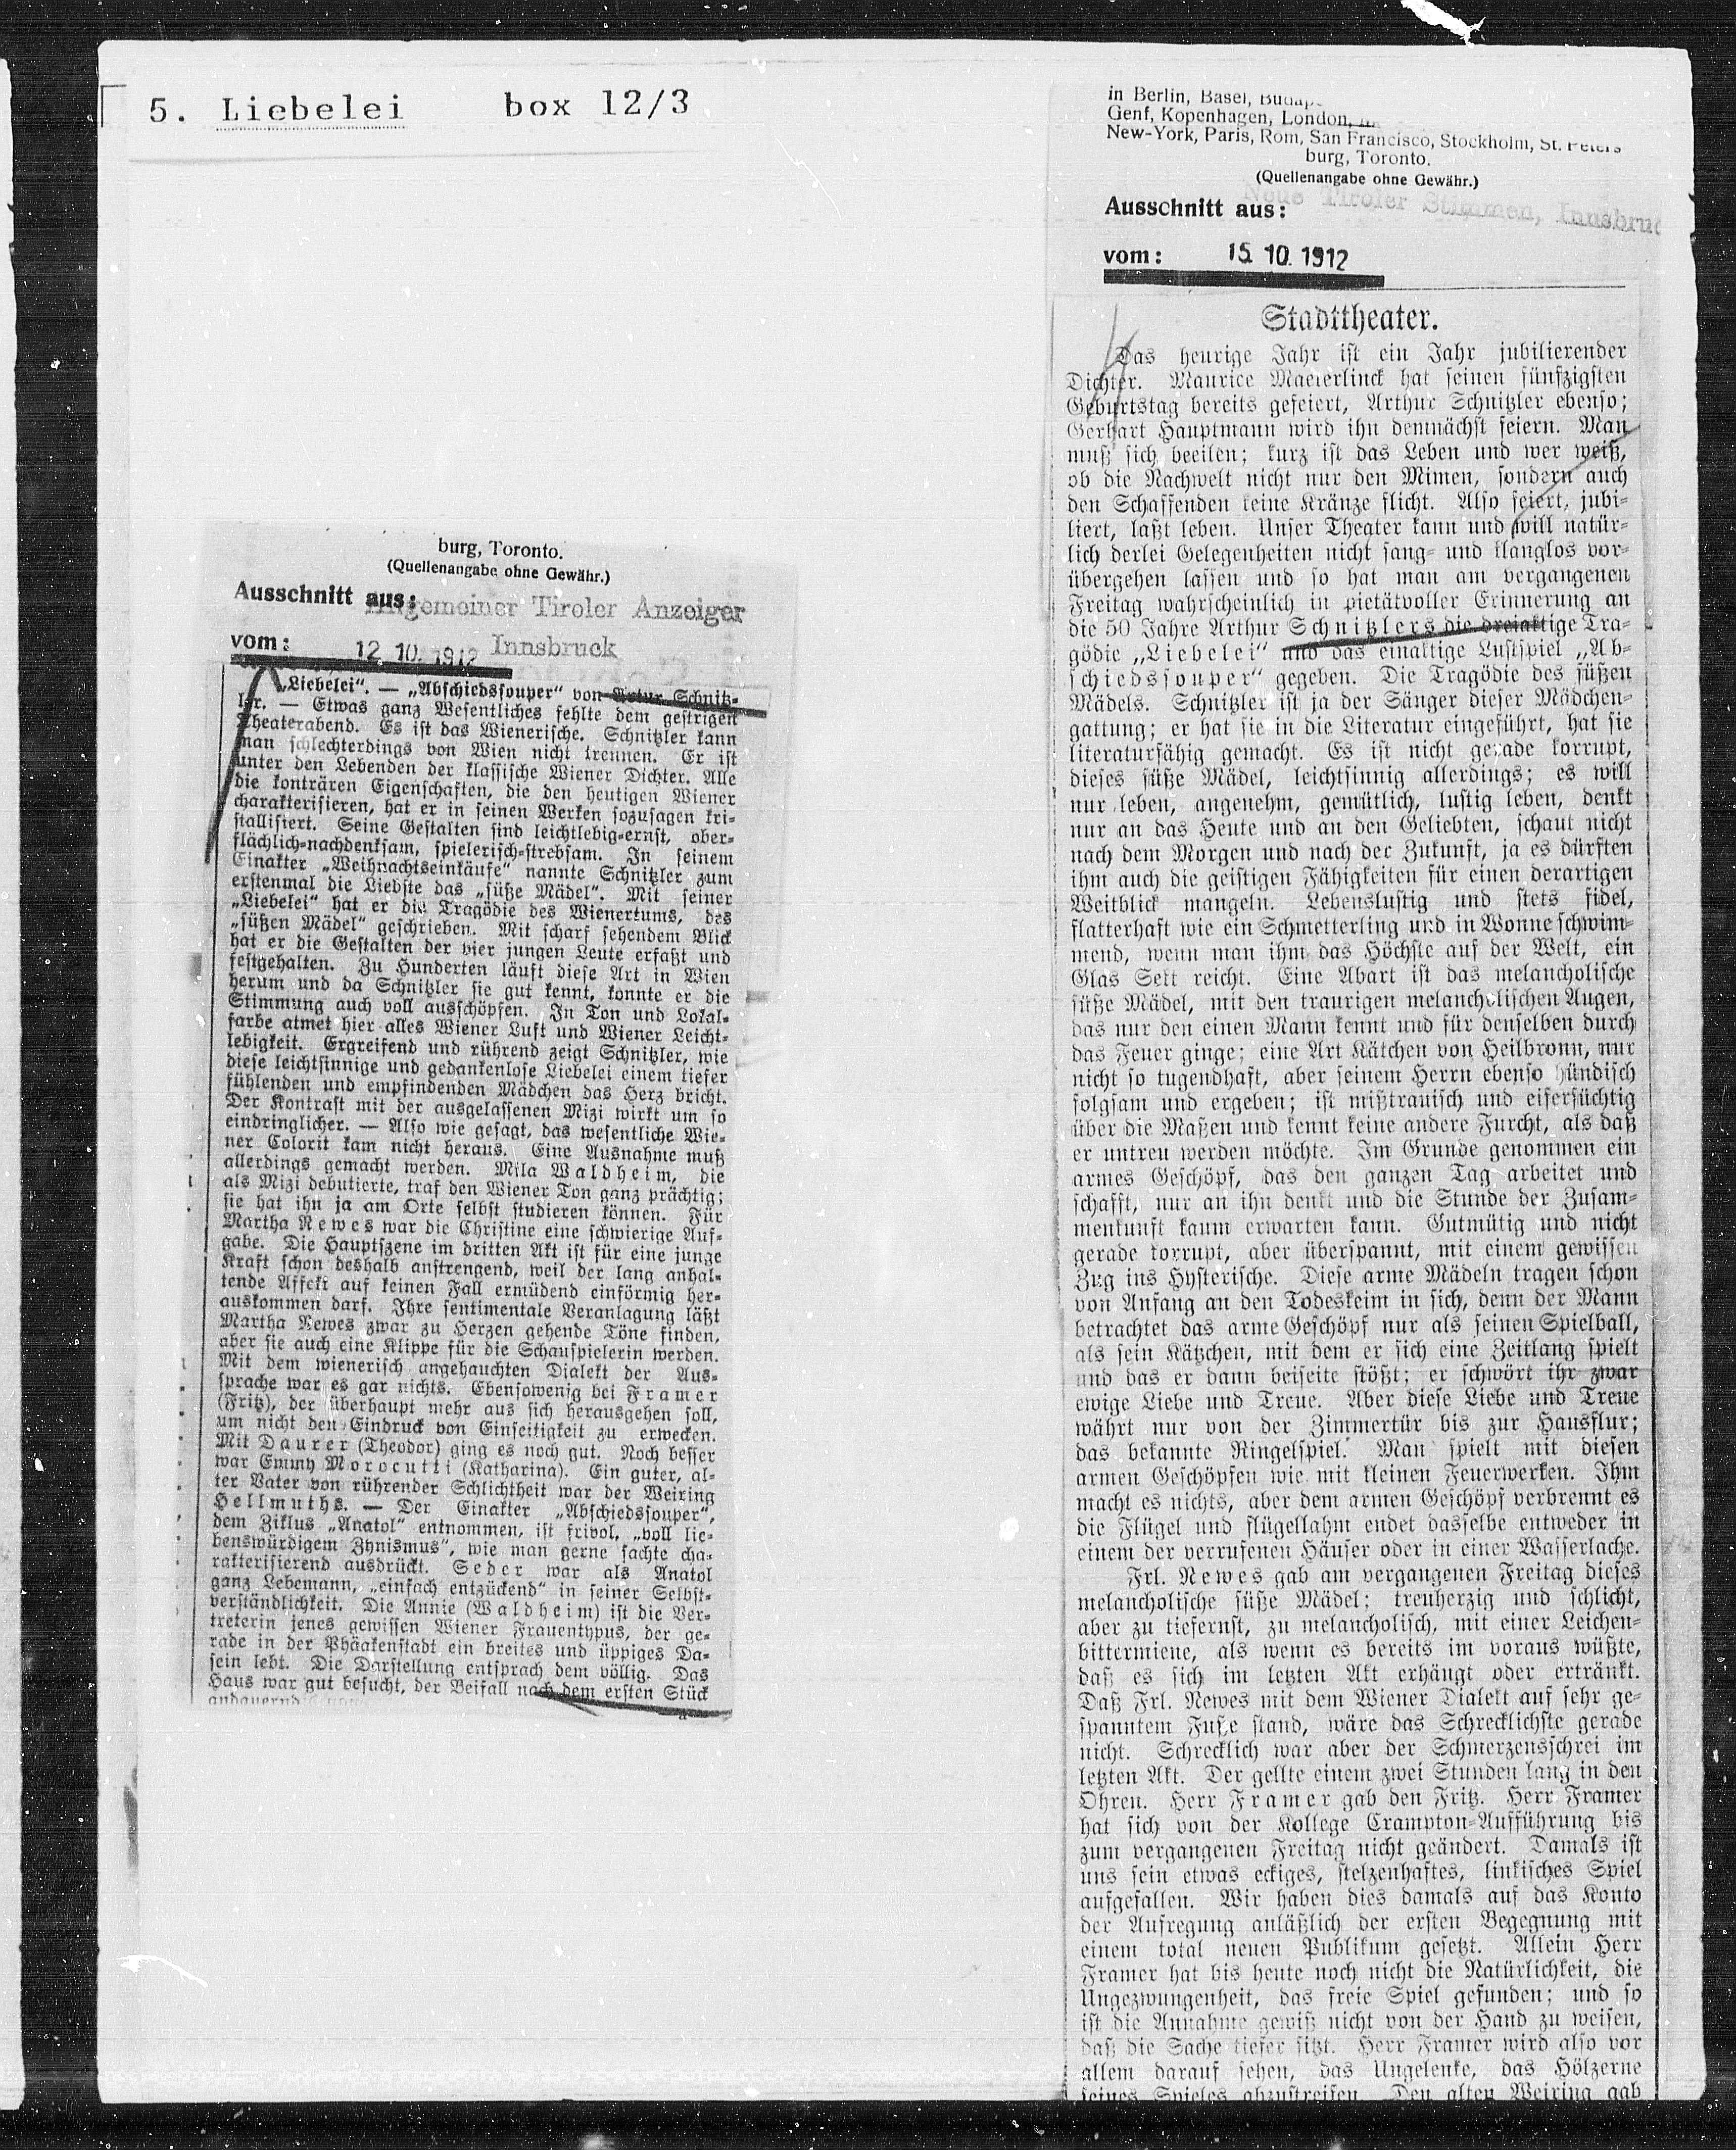 5. Liebelei box 12/3
burg, Toronto.
(Quellenangabe ohne Gewähr.)
Ausschnitt aus: Allgemeiner Tiroler Anzeiger
vom: 12. 10. 1912 Innsbruck
„Liebelei“. — „Abschiedssouper“ von Artur Schnitz-
ler. — Etwas ganz Wesentliches fehlte dem gestrigen
Theaterabend. Es ist das Wienerische. Schnitzler kann
man schlechterdings von Wien nicht trennen. Er ist
unter den Lebenden der klassische Wiener Dichter. Alle
die konträren Eigenschaften, die den heutigen Wiener
charakterisieren, hat er in seinen Werken sozusagen kri-
stallisiert. Seine Gestalten sind leichtlebig-ernst, ober-
flächlich-nachdenksam, spielerisch-strebsam. In seinem
Einakter „Weihnachtseinkäufe“ nannte Schnitzler zum
erstenmal die Liebste das „süße Mädel“. Mit seiner
„Liebelei“ hat er die Tragödie des Wienertums, des
„süßen Mädel“ geschrieben. Mit scharf sehendem Blick
hat er die Gestalten der vier jungen Leute erfaßt und
festgehalten. Zu Hunderten läuft diese Art in Wien
herum und da Schnitzler sie gut kennt, konnte er die
Stimmung auch voll ausschöpfen. In Ton und Lokal-
farbe atmet hier alles Wiener Luft und Wiener Leicht-
lebigkeit. Ergreifend und rührend zeigt Schnitzler, wie
diese leichtsinnige und gedankenlose Liebelei einem tiefer
fühlenden und empfindenden Mädchen das Herz bricht.
Der Kontrast mit der ausgelassenen Mizi wirkt um so
eindringlicher. — Also wie gesagt, das wesentliche Wie-
ner Colorit kam nicht heraus. Eine Ausnahme muß
allerdings gemacht werden. Mila Waldheim, die
als Mizi debutierte, traf den Wiener Ton ganz prächtig;
sie hat ihn ja am Orte selbst studieren können. Für
Martha Newes war die Christine eine schwierige Auf-
gabe. Die Hauptszene im dritten Akt ist für eine junge
Kraft schon deshalb anstrengend, weil der lang anhal-
tende Affekt auf keinen Fall ermüdend einförmig her-
auskommen darf. Ihre sentimentale Veranlagung läßt
Martha Newes zwar zu Herzen gehende Töne finden,
aber sie auch eine Klippe für die Schauspielerin werden.
Mit dem wienerisch angehauchten Dialekt der Aus-
sprache war es gar nichts. Ebensowenig bei Framer
(Fritz), der überhaupt mehr aus sich herausgehen soll,
um nicht den Eindruck von Einseitigkeit zu erwecken.
Mit Daurer (Theodor) ging es noch gut. Noch besser
war Emmy Morocutti (Katharina). Ein guter, al-
ter Vater von rührender Schlichtheit war der Weiring
Hellmuths. — Der Einakter „Abschiedssouper“,
dem Ziklus „Anatol“ entnommen, ist frivol, „voll lie-
benswürdigem Zynismus“, wie man gerne sachte cha-
rakterisierend ausdrückt. Seder war als Anatol
ganz Lebemann, „einfach entzückend“ in seiner Selbst-
verständlichkeit. Die Annie (Waldheim) ist die Ver-
treterin jenes gewissen Wiener Frauentypus, der ge-
rade in der Phäakenstadt ein breites und üppiges Da-
sein lebt. Die Darstellung entsprach dem völlig. Das
Haus war gut besucht, der Beifall nach dem ersten Stück
andauernd
in Berlin, Basel,
Genf, Kopenhagen, London,
New-York, Paris, Rom, San Francisco, Stockholm, St. Peters
burg, Toronto.
(Quellenangabe ohne Gewähr.)
Ausschnitt aus: Neue Tiroler Stimmen, Innsbruc
vom: 15. 10. 1912
Stadttheater.
Das heurige Jahr ist ein Jahr jubilierender
Dichter. Maurice Maeterlinck hat seinen fünfzigsten
Geburtstag bereits gefeiert, Arthur Schnitzler ebenso;
Gerhart Hauptmann wird ihn demnächst feiern. Man
muß sich beeilen; kurz ist das Leben und wer weiß,
ob die Nachwelt nicht nur den Mimen, sondern auch
den Schaffenden keine Kränze flicht. Also feiert, jubi-
liert, laßt leben. Unser Theater kann und will natür-
lich derlei Gelegenheiten nicht sang- und klanglos vor-
übergehen lassen und so hat man am vergangenen
Freitag wahrscheinlich in pietätvoller Erinnerung an
die 50 Jahre Arthur Schnitzlers die dreiaktige Tra-
gödie „Liebelei“ und das einaktige Lustspiel „Ab-
schiedssouper“ gegeben. Die Tragödie des süßen
Mädels. Schnitzler ist ja der Sänger dieser Mädchen-
gattung; er hat sie in die Literatur eingeführt, hat sie
literaturfähig gemacht. Es ist nicht gerade korrupt,
dieses süße Mädel, leichtsinnig allerdings; es will
nur leben, angenehm, gemütlich, lustig leben, denkt
nur an das Heute und an den Geliebten, schaut nicht
nach dem Morgen und nach der Zukunft, ja es dürften
ihm auch die geistigen Fähigkeiten für einen derartigen
Weitblick mangeln. Lebenslustig und stets fidel,
flatterhaft wie ein Schmetterling und in Wonne schwim-
mend, wenn man ihm das Höchste auf der Welt, ein
Glas Sekt reicht. Eine Abart ist das melancholische
süße Mädel, mit den traurigen melancholischen Augen,
das nur den einen Mann kennt und für denselben durch
das Feuer ginge; eine Art Kätchen von Heilbronn, nur
nicht so tugendhaft, aber seinem Herrn ebenso hündisch
folgsam und ergeben; ist mißtrauisch und eifersüchtig
über die Maßen und kennt keine andere Furcht, als daß
er untreu werden möchte. Im Grunde genommen ein
armes Geschöpf, das den ganzen Tag arbeitet und
schafft, nur an ihn denkt und die Stunde der Zusam-
menkunft kaum erwarten kann. Gutmütig und nicht
gerade korrupt, aber überspannt, mit einem gewissen
Zug ins Hysterische. Diese arme Mädeln tragen schon
von Anfang an den Todeskeim in sich, denn der Mann
betrachtet das arme Geschöpf nur als seinen Spielball,
als sein Kätzchen, mit dem er sich eine Zeitlang spielt
und das er dann beiseite stößt; er schwört ihr zwar
ewige Liebe und Treue. Aber diese Liebe und Treue
währt nur von der Zimmertür bis zur Hausflur;
das bekannte Ringelspiel. Man spielt mit diesen
armen Geschöpfen wie mit kleinen Feuerwerken. Ihm
macht es nichts, aber dem armen Geschöpf verbrennt es
die Flügel und flügellahm endet dasselbe entweder in
einem der verrufenen Häuser oder in einer Wasserlache.
Frl. Newes gab am vergangenen Freitag dieses
melancholische süße Mädel; treuherzig und schlicht,
aber zu tiefernst, zu melancholisch, mit einer Leichen-
bittermiene, als wenn es bereits im voraus wüßte,
daß es sich im letzten Akt erhängt oder ertränkt.
Daß Frl. Newes mit dem Wiener Dialekt auf sehr ge-
spanntem Fuße stand, wäre das Schrecklichste gerade
nicht. Schrecklich war aber der Schmerzensschrei im
letzten Akt. Der gellte einem zwei Stunden lang in den
Ohren. Herr Framer gab den Fritz. Herr Framer
hat sich von der Kollege Crampton-Aufführung bis
zum vergangenen Freitag nicht geändert. Damals ist
uns sein etwas eckiges, stelzenhaftes, linkisches Spiel
aufgefallen. Wir haben dies damals auf das Konto
der Aufregung anläßlich der ersten Begegnung mit
einem total neuen Publikum gesetzt. Allein Herr
Framer hat bis heute noch nicht die Natürlichkeit, die
Ungezwungenheit, das freie Spiel gefunden; und so
ist die Annahme gewiß nicht von der Hand zu weisen,
daß die Sache tiefer sitzt. Herr Framer wird also vor
allem darauf sehen, das Ungelenke, das Hölzerne
seines Spieles abzustreifen. Den alten Weiring gab